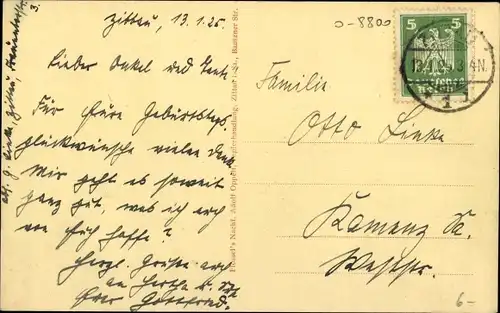 Zittau, 13.1.25.
Lieber Onkel und Tante
Für Eure Geburtstags-
glückwünsche vielen Dank.
Mir geht es soweit
ganz gut, was ich auch
von Euch hoffe?
Herzl. Grüße auch
an Hertha u.
Euer Gottfried.
Zittau,
3.
Nachf. Adolf Oppelt, Zittau i. Sa., Bautzner Str.
0-8800
5 5
13.1.25. 3-4N.
Familie
Otto Linke
Kamenz Sa.
Weststr.
6-